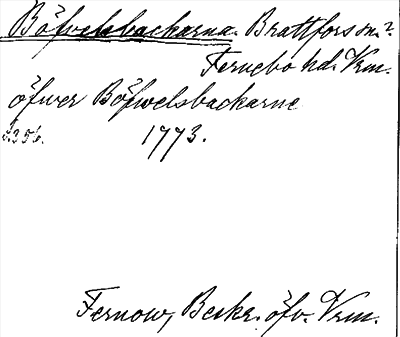 Böfvelsbackarna. Brattfors sn.?
Fernebo hd. Vrm.
öfwer Böfwelsbackarne
s. 356. 1773.
Fernow, Beskr. öfv. Vrm.